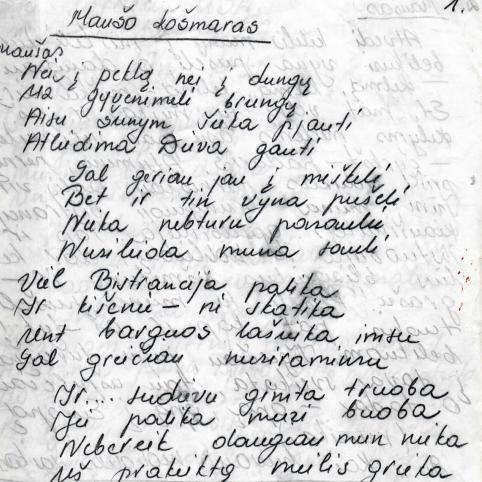 1.
Maušo košmaras
maušas
Nei į peklą nei į dungų
Už gyvenimėli brungų
Aisu šunym šūka pjauti
Atleidima Diva gauti
Gal geriau jau į miškeli
Bet ir tin vyna pušeli
Nuka nebturu pasauli
Nusileida muna sauli
Vžėl Bistrancija palika
Ir kišenie – ni skatika
Unt bargnos lašinika imsu
Gal greičiau nusiraminsu
Ir.... suduvu gimta truoba
Jei palika muzi buoba
Nebereik daugiau mun nika
Už prakeiktą meilis grieka